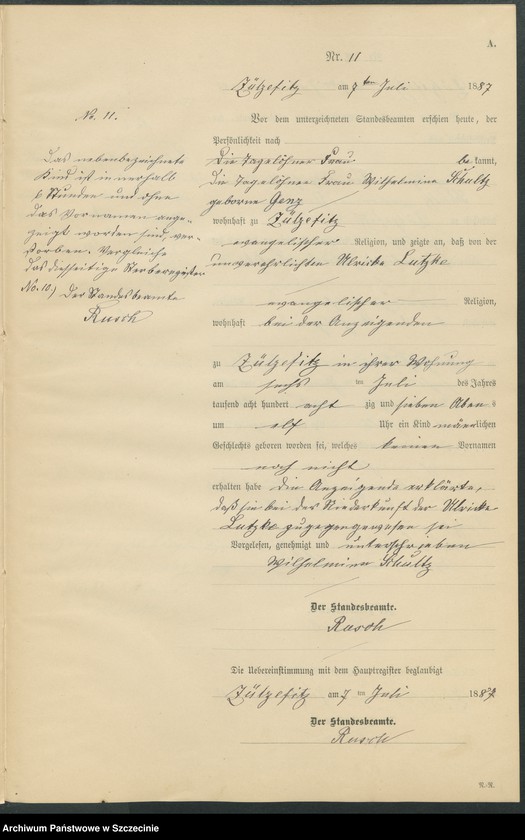 A.
Nr. 11
Zülzefitz am 7ten Juli 1887
Vor dem unterzeichneten Standesbeamten erschien heute, der
Persönlichkeit nach
die Tagelöhner Frau bekannt,
die Tagelöhner Frau Wilhelmine Schultz
geborne Genz
wohnhaft zu Zülzefitz
evangelischer Religion, und zeigte an, daß von der
unverehelichten Ulrike Lutzke
evangelischer Religion,
wohnhaft bei der Anzeigenden
zu Zülzefitz in ihrer Wohnung
am sechs ten Juli des Jahres
tausend acht hundert acht zig und sieben Abends
um elf Uhr ein Kind männlichen
Geschlechts geboren worden sei, welches keinen Vornamen
noch nicht
erhalten habe die Anzeigende erklärte,
daß sie bei der Niederkunft der Ulricke
Lutzke zugegengewesen sei
Vorgelesen, genehmigt und unterschrieben
Wilhelmine Schultz
Der Standesbeamte.
Rasch
Die Uebereinstimmung mit dem Hauptregister beglaubigt
Zülzefitz am 7 ten Juli 1887
Der Standesbeamte.
Rasch
No. 11.
Das nebenbezeichnete
Kind ist innerhalb
6 Stunden und ohne
das Vornamen ange-
zeigt worden sind, ver-
storben. Vergleiche
das diesseitige Sterberegister
No. 10.) Der Standesbeamte
Rasch
R.-R.
Archiwum Państwowe w Szczecinie